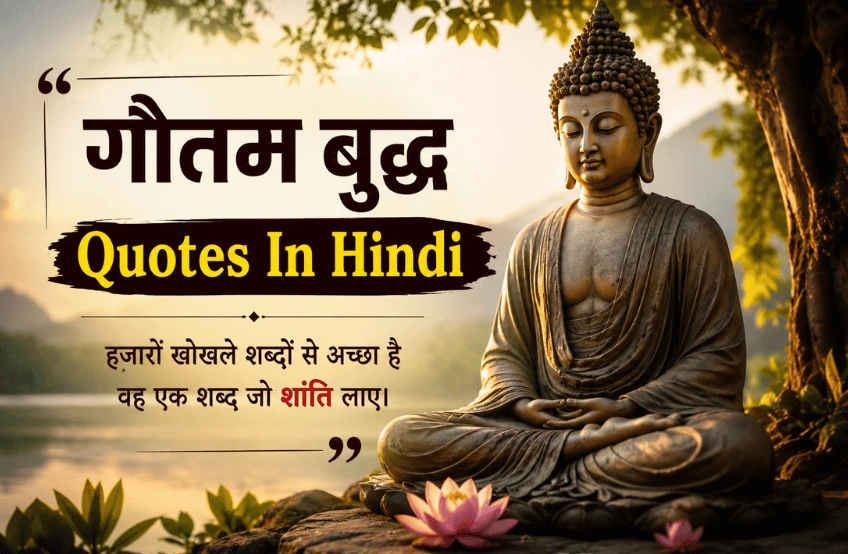 “
गौतम बुद्ध
Quotes In Hindi
हजारों खोखले शब्दों से अच्छा है
वह एक शब्द जो शांति लाए।
”